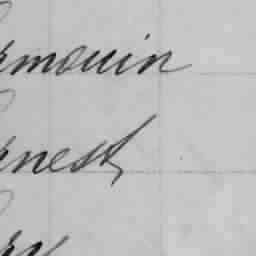 rmouin
rnest
ry